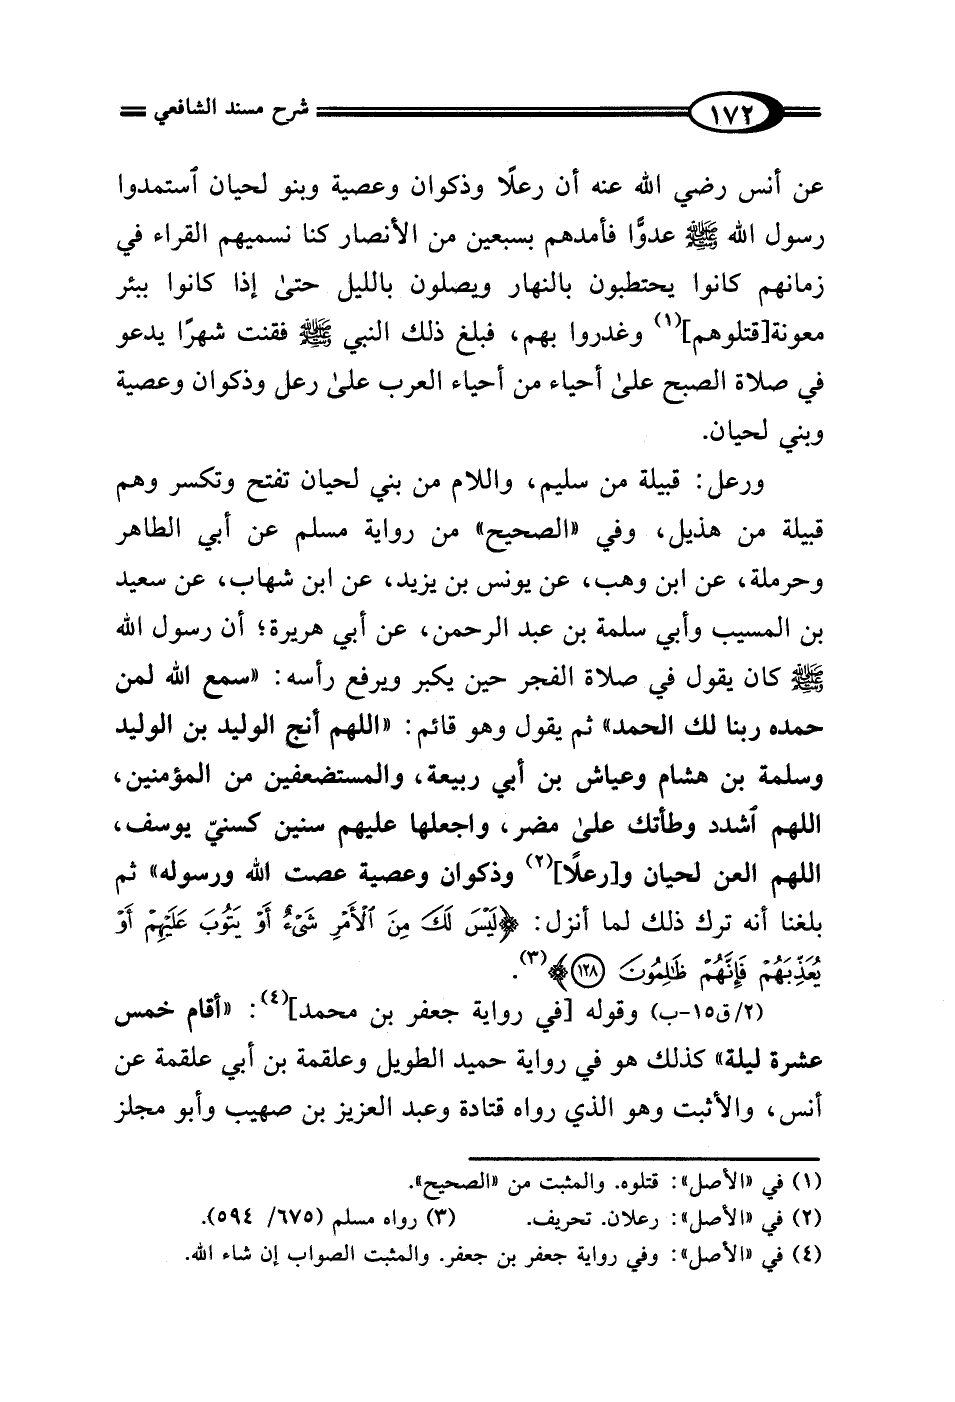 ١٧٢ شرح مسند الشافعي
عن أنس رضي الله عنه أن رعلًا وذكوان وعصية وبنو لحيان ٱستمدوا
رسول الله ﷺ عدوًّا فأمدهم بسبعين من الأنصار كنا نسميهم القراء في
زمانهم كانوا يحتطبون بالنهار ويصلون بالليل حتىٰ إذا كانوا ببئر
معونة[قتلوهم](١) وغدروا بهم، فبلغ ذلك النبي ﷺ فقنت شهرًا يدعو
في صلاة الصبح علىٰ أحياء من أحياء العرب علىٰ رعل وذكوان وعصية
وبني لحيان.
ورعل: قبيلة من سليم، واللام من بني لحيان تفتح وتكسر وهم
قبيلة من هذيل، وفي «الصحيح» من رواية مسلم عن أبي الطاهر
وحرملة، عن ابن وهب، عن يونس بن يزيد، عن ابن شهاب، عن سعيد
بن المسيب وأبي سلمة بن عبد الرحمن، عن أبي هريرة؛ أن رسول الله
ﷺ كان يقول في صلاة الفجر حين يكبر ويرفع رأسه: «سمع الله لمن
حمده ربنا لك الحمد» ثم يقول وهو قائم: «اللهم أنج الوليد بن الوليد
وسلمة بن هشام وعياش بن أبي ربيعة، والمستضعفين من المؤمنين،
اللهم ٱشدد وطأتك علىٰ مضر، واجعلها عليهم سنين كسنيّ يوسف،
اللهم العن لحيان و[رعلًا](٢) وذكوان وعصية عصت الله ورسوله» ثم
بلغنا أنه ترك ذلك لما أنزل: ﴿لَيْسَ لَكَ مِنَ ٱلْأَمْرِ شَيْءٌ أَوْ يَتُوبَ عَلَيْهِمْ أَوْ
يُعَذِّبَهُمْ فَإِنَّهُمْ ظَٰلِمُونَ ١٢٨﴾(٣).
(٢/ق١٥-ب) وقوله [في رواية جعفر بن محمد](٤): «أقام خمس
عشرة ليلة» كذلك هو في رواية حميد الطويل وعلقمة بن أبي علقمة عن
أنس، والأثبت وهو الذي رواه قتادة وعبد العزيز بن صهيب وأبو مجلز
(١) في «الأصل»: قتلوه. والمثبت من «الصحيح».
(٢) في «الأصل»: رعلان. تحريف. (٣) رواه مسلم (٦٧٥/ ٥٩٤).
(٤) في «الأصل»: وفي رواية جعفر بن جعفر. والمثبت الصواب إن شاء الله.